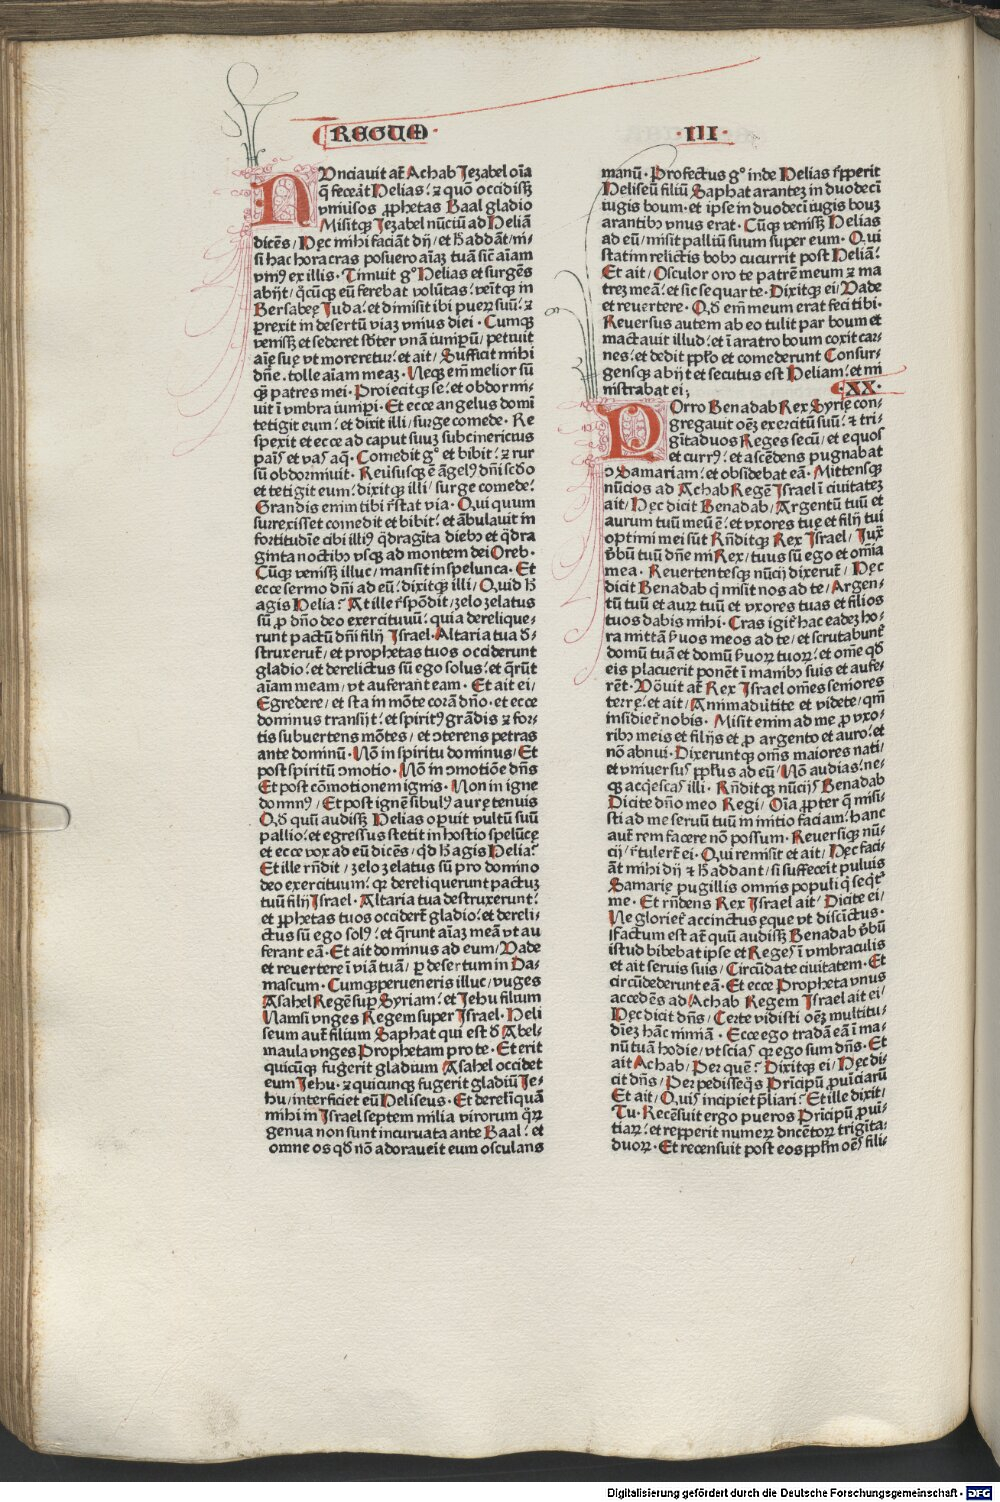 REGUM
III
NUnciavit at̄ Achab Jezabel oīa
q̄ feceāt Helias: ⁊ quō occidisſꝫ
vniuſos ꝓphetas Baal gladio
Misitqꝫ Jezabel nūciū ad Heliā
dicēs / Hęc mihi faciāt dij / et h̄ addāt / ni-
si hac hora cras posuero aīaꝫ tuā sic̄ aīam
vniꝰ ex illis · Timuit gº Helias et surgēs
abijt / q̄cūqꝫ eū ferebat volūtas: venītqꝫ in
Bersabeę Juda: et dimisit ibi pueꝝ suū: ⁊
ꝑrexit in desertū viaꝫ vnius diei · Cumqꝫ
venisſꝫ et sederet sb̄ter vnā iunipꝝū / petiuit
aīę suę vt moreretur: et ait / Sufficit mihi
dn̄e · tolle aīam meaꝫ · Neqꝫ em̄ melior sū
qꝫ patres mei · Proiecitqꝫ se: et obdormi-
uit ī vmbra iunipi · Et ecce angelus domī
tetigit eum: et dixit illi / surge comede · Re
spexit et ecce ad caput suuꝫ subcinericius
pais̄ et vaſ aq̄ · Comedit gº et bibit: ⁊ rur
sū obdormiuit · Reuſusqꝫ ē āgelꝰ dn̄i scd̄o
et tetigit eum: dixitqꝫ illi / surge comede:
Grandis enim tibi r̄stat via · Qui quum
surrexisset comedit et bibit: et ābulauit in
fortitudīe cibi illiꝰ q̄dragīta diebꝫ et q̄dra
gīnta noctibꝫ vsqꝫ ad montem dei Oreb ·
Cūqꝫ venisſꝫ illuc / mansit in spelunca · Et
ecce sermo dn̄i ad eū: dixitqꝫ illi / Quid h̄
agis Helia? At ille r̄spōdit / zelo zelatus
sū ꝓ dn̄o deo exercituuū: quia derelique-
runt pactū dn̄i filij Israel · Altaria tua d̄-
struxerut̄ / et prophetas tuos occiderunt
gladio: et derelictus sū ego solus: et q̄rūt
aīam meam / vt auferant eam · Et ait ei /
Egredere / et sta in mōte corā dn̄o · et ecce
dominus transijt: et spiritꝰ grādis ⁊ for-
tis subuertens mōtes / et ↄterens petras
ante dominū · Nō in spiritu dominus / Et
post spiritū ↄmotio · Nō in ↄmotiōe dn̄s
Et post cōmotionem ignis · Non in igne
dominꝰ / Et post ignē sibulꝰ aurę tenuis
Qd̄ quū audisſꝫ Helias oꝑuit vultū suū
pallio: et egressus stetit in hostio spelūcę
et ecce vox ad eū dicēs / qd̄ h̄ agis Helia?
Et ille rn̄dit / zelo zelatus sū pro domino
deo exercituum: qꝛ dereliquerunt pactuꝫ
tuū filij Israel · Altaria tua destruxerunt:
et ꝓphetas tuos occiderēt gladio: et dereli-
ctus sū ego solꝰ: et q̄runt aīaꝫ meā vt au
ferant eā · Et ait dominus ad eum / Vade
et reuertere ī viā tuā / ꝑ desertum in Da-
mascum · Cumqꝫ perueneris illuc / vuges
Asahel Regē suꝑ Syriam: et Jehu filium
Namsi vnges Regem super Israel · Heli
seum aut̄ filium Saphat qui est d̄ Abel-
maula vnges Prophetam pro te · Et erit
quicūqꝫ fugerit gladium Asahel occidet
eum Jehu · ⁊ quicunqꝫ fugerit gladiū Je-
hu / interficiet eū Heliseus · Et dereliquā
mihi in Israel septem milia virorum qꝛꝝ
genua non sunt incuruata ante Baal: et
omne os qd̄ nō adorauēit eum osculans
manū · Profectus gº inde Helias r̄ꝑperit
Heliseū filiū Saphat arantez in duodecī
iugis boum · et ipse in duodecī iugis bouꝫ
arantibꝫ vnus erat · Cūqꝫ venisſꝫ Helias
ad eū / misit palliū suum super eum · Qui
statim relictis bobꝫ cucurrit post Heliā:
Et ait / Osculor oro te patrē meum ⁊ ma
trez meā: et sic sequar te · Dixitqꝫ ei / Vade
et reuertere · Qd̄ em̄ meum erat feci tibi ·
Reuersus autem ab eo tulit par boum et
mactauit illud: et ī aratro boum coxit car-
nes: et dedit pplo et comederunt Consur-
gensqꝫ abijt et secutus est Heliam: et mi
nistrabat ei;
·XX·
POrro Benadab Rex Syrię con-
gregauit oēꝫ exercitū suū: ⁊ tri-
gītaduos Reges secū / et equos
et currꝰ: et ascēdens pugnabat
ↄ Samariam: et obsidebat eā · Mittensqꝫ
nūcios ad Achab Regē Israel ī ciuitatez
ait / Hęc dicit Benadab / Argentū tuū et
aurum tuū meū ē: et vxores tuę et filij tui
optimi mei sūt Rn̄ditqꝫ Rex Israel / Juꝝ
v̄bū tuū dn̄e mi Rex / tuus sū ego et om̄ia
mea · Reuertentesqꝫ nūcij dixerut̄ / Hęc
dicit Benadab q̄ misit nos ad te / Argen-
tū tuū et auꝝ tuū et vxores tuas et filios
tuos dabis mihi · Cras igit̄ hac eadez ho-
ra mittā ẜuos meos ad te / et scrutabunt̄
domū tuā et domū ẜuoꝝ tuoꝝ: et om̄e qd̄
eis placuerit ponēt ī manibꝫ suis et aufe-
rēt · Vōuit at̄ Rex Israel om̄es seniores
terrę: et ait / Animaduẽtite et videte / qm̄
insidiet̄ nobis · Misit enim ad me ꝓ vxo-
ribꝫ meis et filijs et ꝓ argento et auro: et
nō abnui · Dixeruntqꝫ om̄s maiores nati /
et vniuersꝰ pplus ad eū / Nō audias: ne-
qꝫ acq̄escaſ illi · Rn̄ditqꝫ nūcijſ Benadab
Dicite dn̄o meo Regi / Oīa ꝓpter q̄ misi-
sti ad me seruū tuū in initio faciam: hanc
aut̄ rem facere nō possum · Reuersiqꝫ nū-
cij / r̄tulert̄ ei · Qui remisit et ait / Hęc faci-
āt mihi dij ⁊ h̄ addant / si suffecēit puluis
Samarię pugillis omnis populi q̄ seqt̄
me · Et rn̄dens Rex Israel ait / Dicite ei /
Ne gloriet̄ accinctus ęque vt discīctus ·
Factum est at̄ quū audisſꝫ Benadab v̄bū
istud bibebat ipse et Regeſ ī vmbraculis
et ait seruis suis / Circūdate ciuitatem · Et
circūdederunt eā · Et ecce Propheta vnus
accedēs ad Achab Regem Israel ait ei /
Hęc dicit dn̄s / Certe vidisti oēꝫ multitu-
dīez hāc nimiā · Ecce ego tradā eā ī ma-
nū tuā hodie / vt sciaſ qꝛ ego sum dn̄s · Et
ait Achab / Per quē? Dixitqꝫ ei / Hęc di-
cit dn̄s / Per pedisseq̄s Prīcipū ꝓuīciarū
Et ait / Quiſ incipiet p̄liari: Et ille dixit /
Tu · Recēsuit ergo pueros Prīcipū ꝓuī-
tiaꝝ: et repꝑerit numeꝝ ducētoꝝ trigīta-
duoꝝ · Et recensuit post eos pplm oēſ fili-
Digitalisierung gefördert durch die Deutsche Forschungsgemeinschaft · DFG